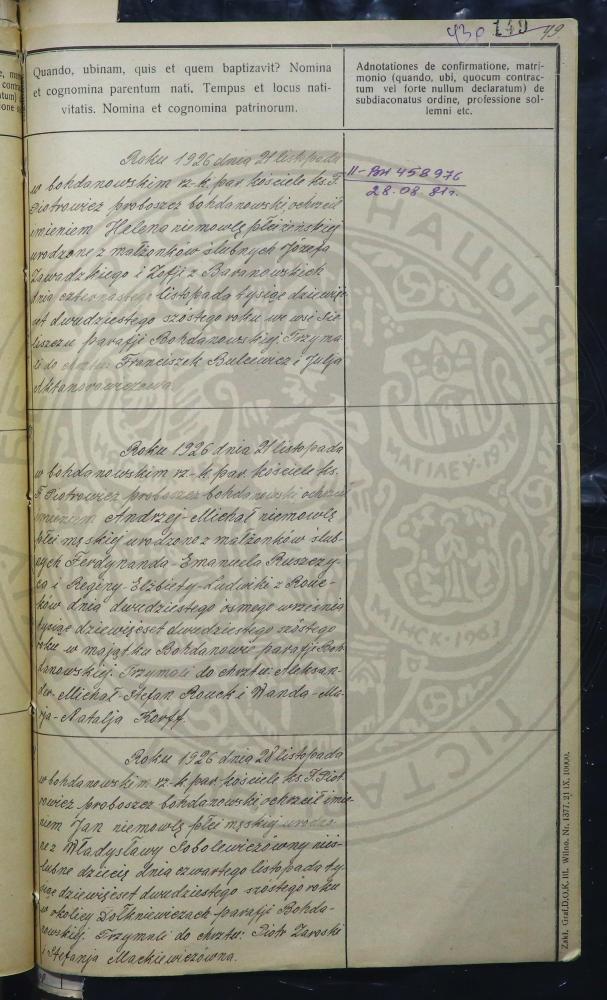 430 149 79
Quando, ubinam, quis et quem baptizavit? Nomina
et cognomina parentum nati. Tempus et locus nati-
vitatis. Nomina et cognomina patrinorum.
Adnotationes de confirmatione, matri-
monio (quando, ubi, quocum contrac-
tum vel forte nullum declaratum) de
subdiaconatus ordine, professione sol-
lemni etc.
Roku 1926 dnia 21 listopada
w bohdanowskim rz-k. par. kościele ks. F.
Piotrowicz proboszcz bohdanowski ochrzcił
imieniem Helena niemowlę płci żeńskiej
urodzone z małżonków ślubnych Józefa
Zawadzkiego i Zofji z Baranowskich
dnia czternastego listopada tysiąc dziewię-
set dwudziestego szóstego roku we wsi
parafji Bohdanowskiej. Trzyma-
li do chrztu: Franciszek Bulcewicz i Julja
II-ВН 458976
28.08.81г.
Roku 1926 dnia 21 listopada
w bohdanowskim rz-k. par. kościele ks.
F. Piotrowicz proboszcz bohdanowski ochrzcił
imieniem Andrzej-Michał niemowlę
płci męskiej urodzone z małżonków ślub-
nych Ferdynanda-Emanuela Ruszczy-
ca i Reginy-Elżbiety-Ludwiki z Rouc-
ków dnia dwudziestego ósmego września
tysiąc dziewięćset dwudziestego szóstego
roku w majątku Bohdanowie parafji Boh-
danowskiej. Trzymali do chrztu: Aleksan-
der-Michał-Stefan Rouck i Wanda-Ma-
rja-Natalja Korff.
Roku 1926 dnia 28 listopada
w bohdanowskim rz-k. par. kościele ks. F. Piot-
rowicz proboszcz bohdanowski ochrzcił imie-
niem Jan niemowlę płci męskiej urodzo-
ne z Władysławy Sobolewiczówny nieś-
lubne dziecię dnia czwartego listopada ty-
siąc dziewięćset dwudziestego szóstego roku
w okolicy Dołkniewiczach parafji Bohda-
nowskiej. Trzymali do chrztu: Piotr Zaroski
i Stefanja Mackiewiczówna.
Zakł. Graf. D.O.K. III. Wilno. Nr. 1377. 21 IX. 10000.